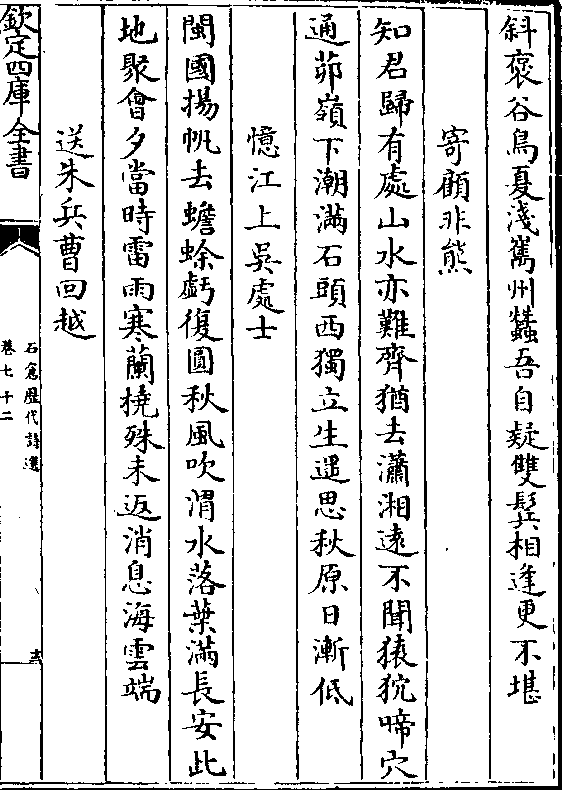 斜褒谷鳥夏淺嶲州蠶吾自疑雙鬂相逢更不堪
寄顧非熊
知君歸有處山水亦難齊猶去瀟湘遠不聞猿狖啼穴
通茆嶺下潮滿石頭西獨立生遥思秋原日漸低
憶江上吳處士
閩國揚帆去蟾蜍虧復圓秋風吹渭水落葉滿長安此
地聚會夕當時雷雨寒蘭橈殊未返消息海雲端
送朱兵曹回越
欽定四庫全書
石倉歷代詩選
卷七十二